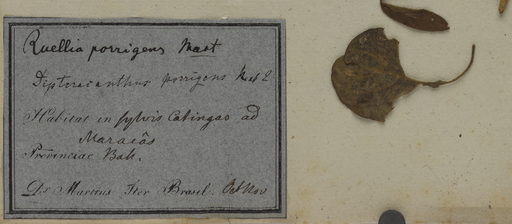 Ruellia porrigens Mart
Dipteracanthus porrigens N. ab E.
Habitat in sylvis Catingas ad
Maracâs
Provinciae Bah.
Dr. Martius Iter Brasil. Oct Nov